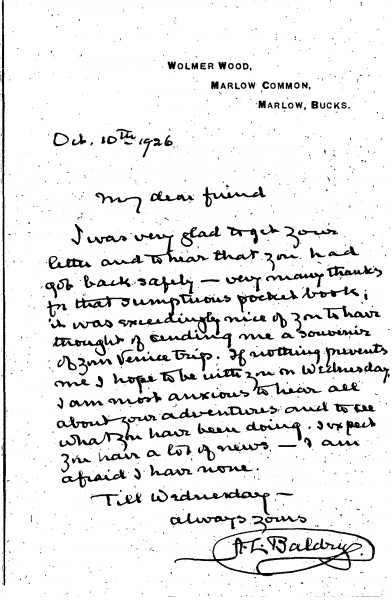 WOLMER WOOD,
MARLOW COMMON,
MARLOW, BUCKS.
Oct. 10th 1926
My dear friend
I was very glad to get your
letter and to hear that you had
got back safely – very many thanks
for that sumptuous pocket book;
it was exceedingly nice of you to have
thought of sending me a souvenir
of your Venice trip. If nothing prevents
me I hope to be with you on Wednesday
I am most anxious to hear all
about your adventures and to see
what you have been doing. I expect
you have a lot of news – I am
afraid I have none.
Till Wednesday –
always yours
A. L. Baldry